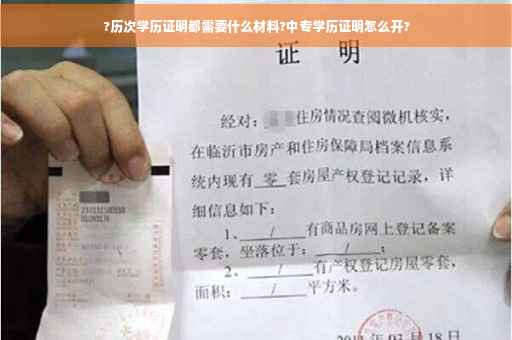 ?历次学历证明都需要什么材料?中专学历证明怎么开?
证 明
经对: 住房情况查阅微机核实,
在临沂市房产和住房保障局档案信息系
统内现有 零 套房屋产权登记记录, 详
细信息如下:
1、 / 有商品房网上登记备案
零套, 坐落位于: / ;
2、 / 有产权登记房屋零套,
面积: / 平方米。